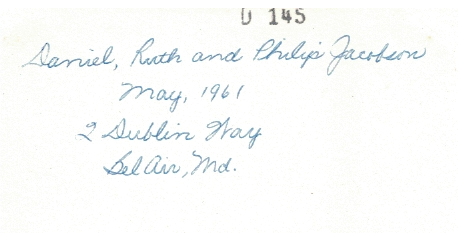 D 145
Daniel, Ruth and Philip Jacobson
May, 1961
2 Dublin Way
Bel Air, Md.